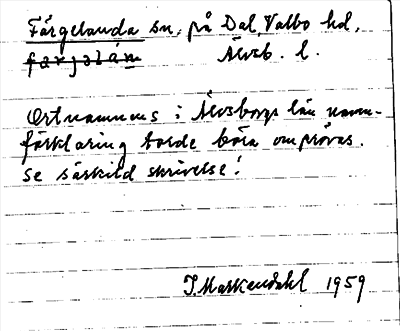 Färgelanda sn, på Dal, Valbo hd,
farjalán Älvsb. l.
Ortnamnens i Älvsborgs län namn-
förklaring torde böra omprövas.
Se särskild skrivelse!
J. Markendahl 1959